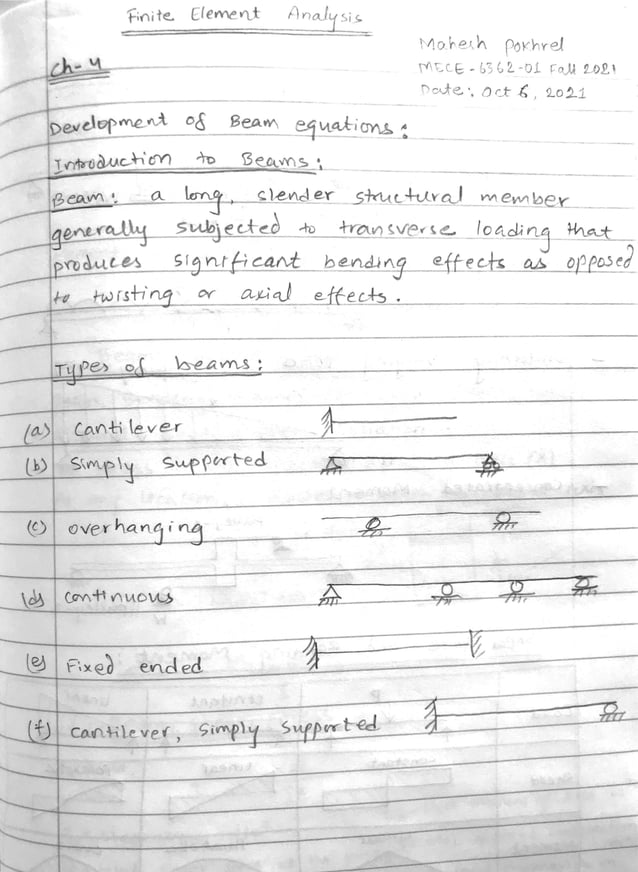 Finite Element Analysis
Mahesh Pokhrel
Ch-4
MECE-6362-01 Fall 2021
Date: Oct 6, 2021
Development of Beam equations:
Introduction to Beams:
Beam: a long, slender structural member
generally subjected to transverse loading that
produces significant bending effects as opposed
to twisting or axial effects.
Types of beams:
(a) cantilever
(b) simply supported
(c) overhanging
(d) continuous
(e) Fixed ended
(f) cantilever, simply supported